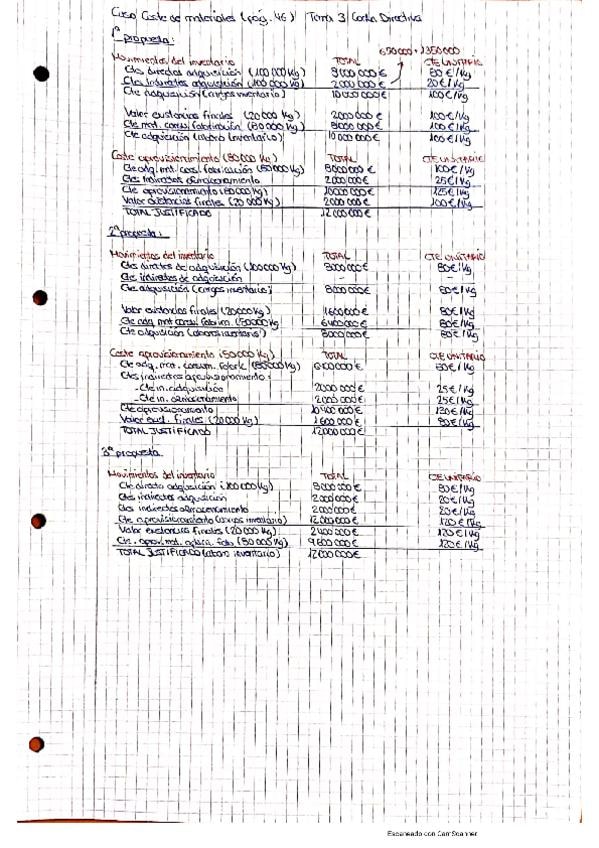 Caso Coste de materiales (pág. 46) Tema 3 Conta Directiva
1ª propuesta:
650000 + 1350000
Movimientos del inventario TOTAL CTE UNITARIO
Ctes directos adquisición (100000 kg) 8000000€ 80€/kg
Ctes indirectos adquisición (100000 kg) 2000000€ 20€/kg
Cte adquisición (cargos inventario) 10000000€ 100€/kg
Valor existencias finales (20000 kg) 2000000€ 100€/kg
Cte mat. consu. fabricación (80000 kg) 8000000€ 100€/kg
Cte adquisición (abono inventario) 10000000€ 100€/kg
Coste aprovisionamiento (80000 kg) TOTAL CTE UNITARIO
Cte adq. mat. cons. fabricación (80000 kg) 8000000€ 100€/kg
Ctes indirectos almacenamiento 2000000€ 25€/kg
Cte aprovisionamiento (80000 kg) 10000000€ 125€/kg
Valor existencias finales (20000 kg) 2000000€ 100€/kg
TOTAL JUSTIFICADO 12000000€
2ª propuesta:
Movimientos del inventario TOTAL CTE UNITARIO
Ctes directos de adquisición (100000 kg) 8000000€ 80€/kg
Ctes indirectos de adquisición - -
Cte adquisición (cargos inventario) 8000000€ 80€/kg
Valor existencias finales (20000 kg) 1600000€ 80€/kg
Cte adq. mat consu. fabricn. (80000 kg 6400000€ 80€/kg
Cte adquisición (abonos inventario) 8000000€ 80€/kg
Coste aprovisionamiento (80000 kg) TOTAL CTE UNITARIO
Cte adq. mat. consum. fabric (80000 kg) 6400000€ 80€/kg
Ctes indirectos aprovisionamiento:
-Cte in. adquisición 2000000€ 25€/kg
-Cte in. almacenamiento 2000000€ 25€/kg
Cte aprovisionamiento 10400000€ 130€/kg
Valor exist. finales (20000 kg) 1600000€ 80€/kg
TOTAL JUSTIFICADO 12000000€
3ª propuesta
Movimientos del inventario TOTAL CTE UNITARIO
Cte directo adquisición (100000 kg) 8000000€ 80€/kg
Ctes indirectos adquisición 2000000€ 20€/kg
Ctes indirectos almacenamiento 2000000€ 20€/kg
Cte aprovisionamiento (cargos inventario) 12000000€ 120€/kg
Valor existencias finales (20000 kg) 2400000€ 120€/kg
Cte. aprov. mat. fab. (80000 kg) 9600000€ 120€/kg
TOTAL JUSTIFICADO (abono inventario) 12000000€
Escaneado con CamScanner